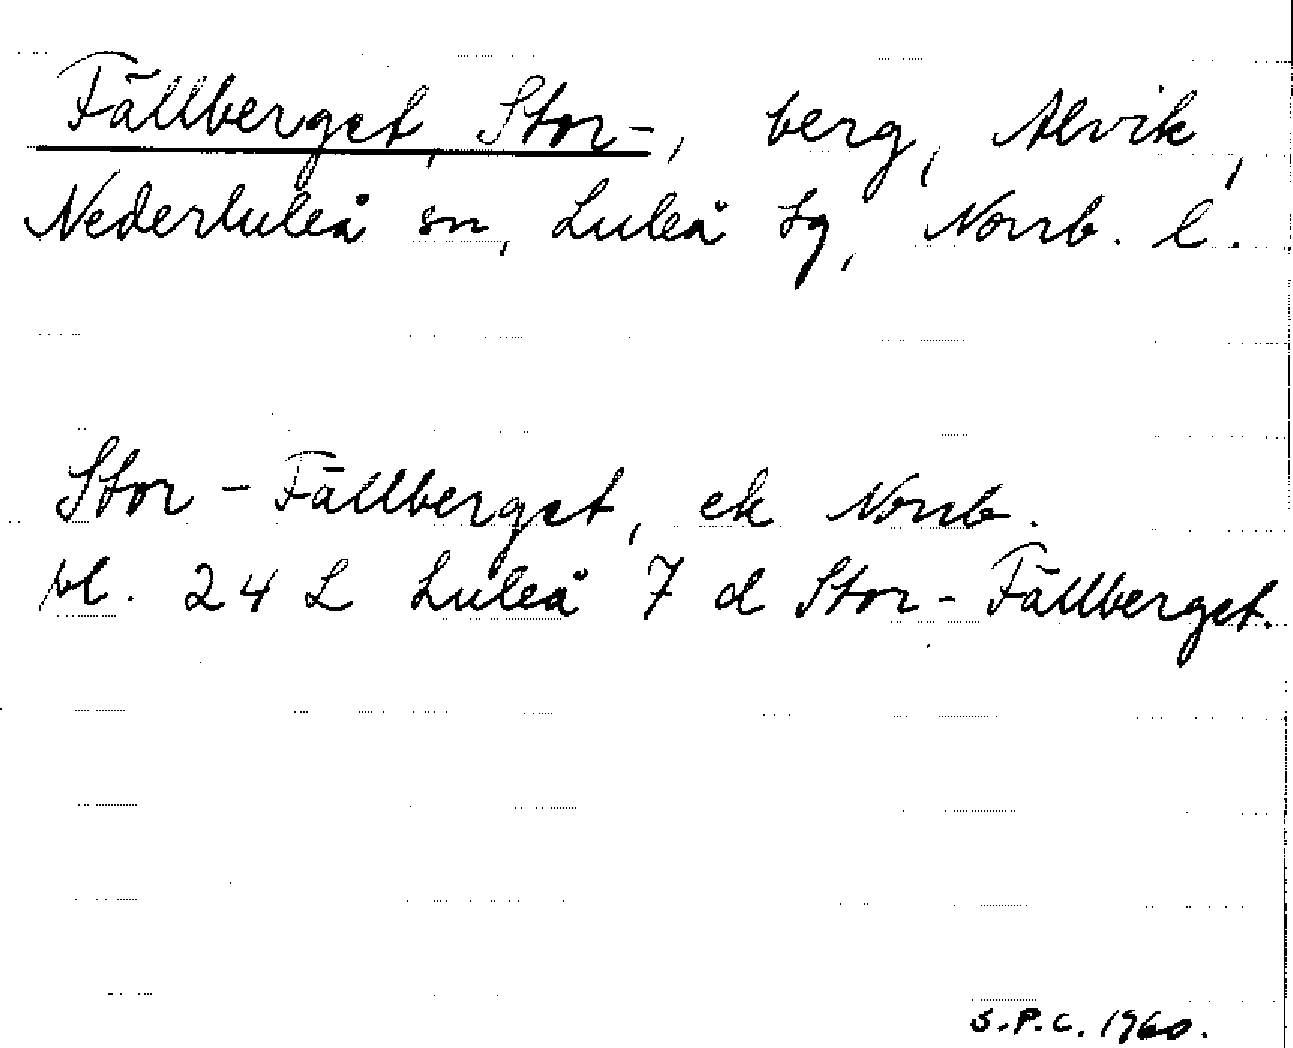 Fällberget, Stor-, berg, Alvik,
Nederluleå sn, Luleå tg, Norrb. l.
Stor-Fällberget, ek Norrb.
bl. 24 L Luleå 7 d Stor-Fällberget.
S.P.C. 1960.